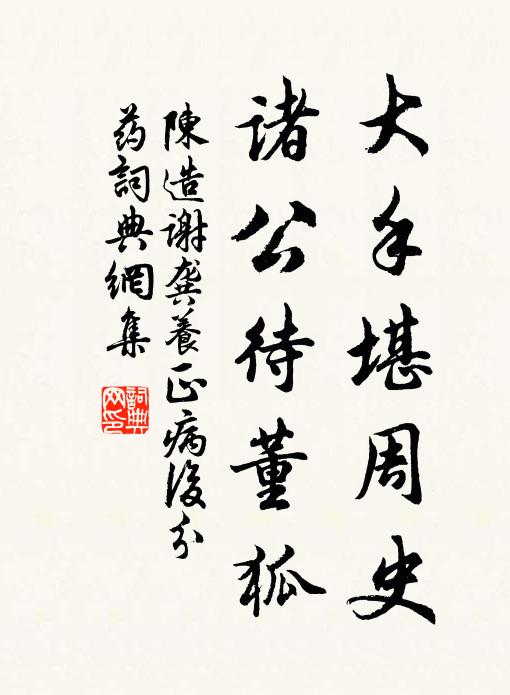 大手堪周史
諸公待董狐
陳造謝龔養正病後分
药詞典網集
詞典网印